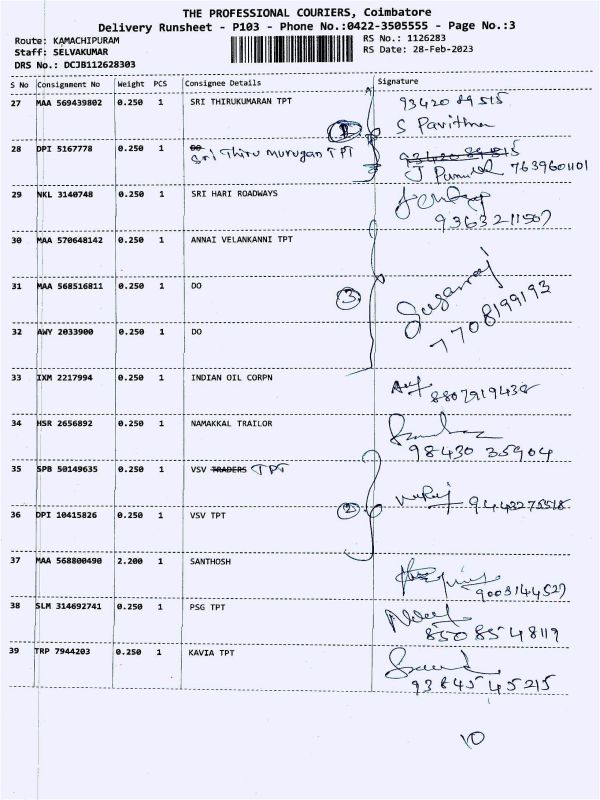 THE PROFESSIONAL COURIERS, Coimbatore
Delivery Runsheet - P103 - Phone No.:0422-3505555 - Page No.:3
Route: KAMACHIPURAM RS No.: 1126283
Staff: SELVAKUMAR RS Date: 28-Feb-2023
DRS No.: DCJB112628303
S No Consignment No Weight PCS Consignee Details Signature
27 MAA 569439802 0.250 1 SRI THIRUKUMARAN TPT 93420 89515
1 S Pavithra
28 DPI 5167778 0.250 1 DO Sri Thiru murugan TPT 93420 89515
7639601101
29 NKL 3140748 0.250 1 SRI HARI ROADWAYS
9363211507
30 MAA 570648142 0.250 1 ANNAI VELANKANNI TPT
31 MAA 568516811 0.250 1 DO
3 7708199193
32 AWY 2033900 0.250 1 DO
33 IXM 2217994 0.250 1 INDIAN OIL CORPN
8807919438
34 HSR 2656892 0.250 1 NAMAKKAL TRAILOR
98430 35904
35 SPB 50149635 0.250 1 VSV TRADERS TPT
36 DPI 10415826 0.250 1 VSV TPT 2 9443275518
37 MAA 568800490 2.200 1 SANTHOSH
9003144527
38 SLM 314692741 0.250 1 PSG TPT
8508548119
39 TRP 7944203 0.250 1 KAVIA TPT
9384545215
10